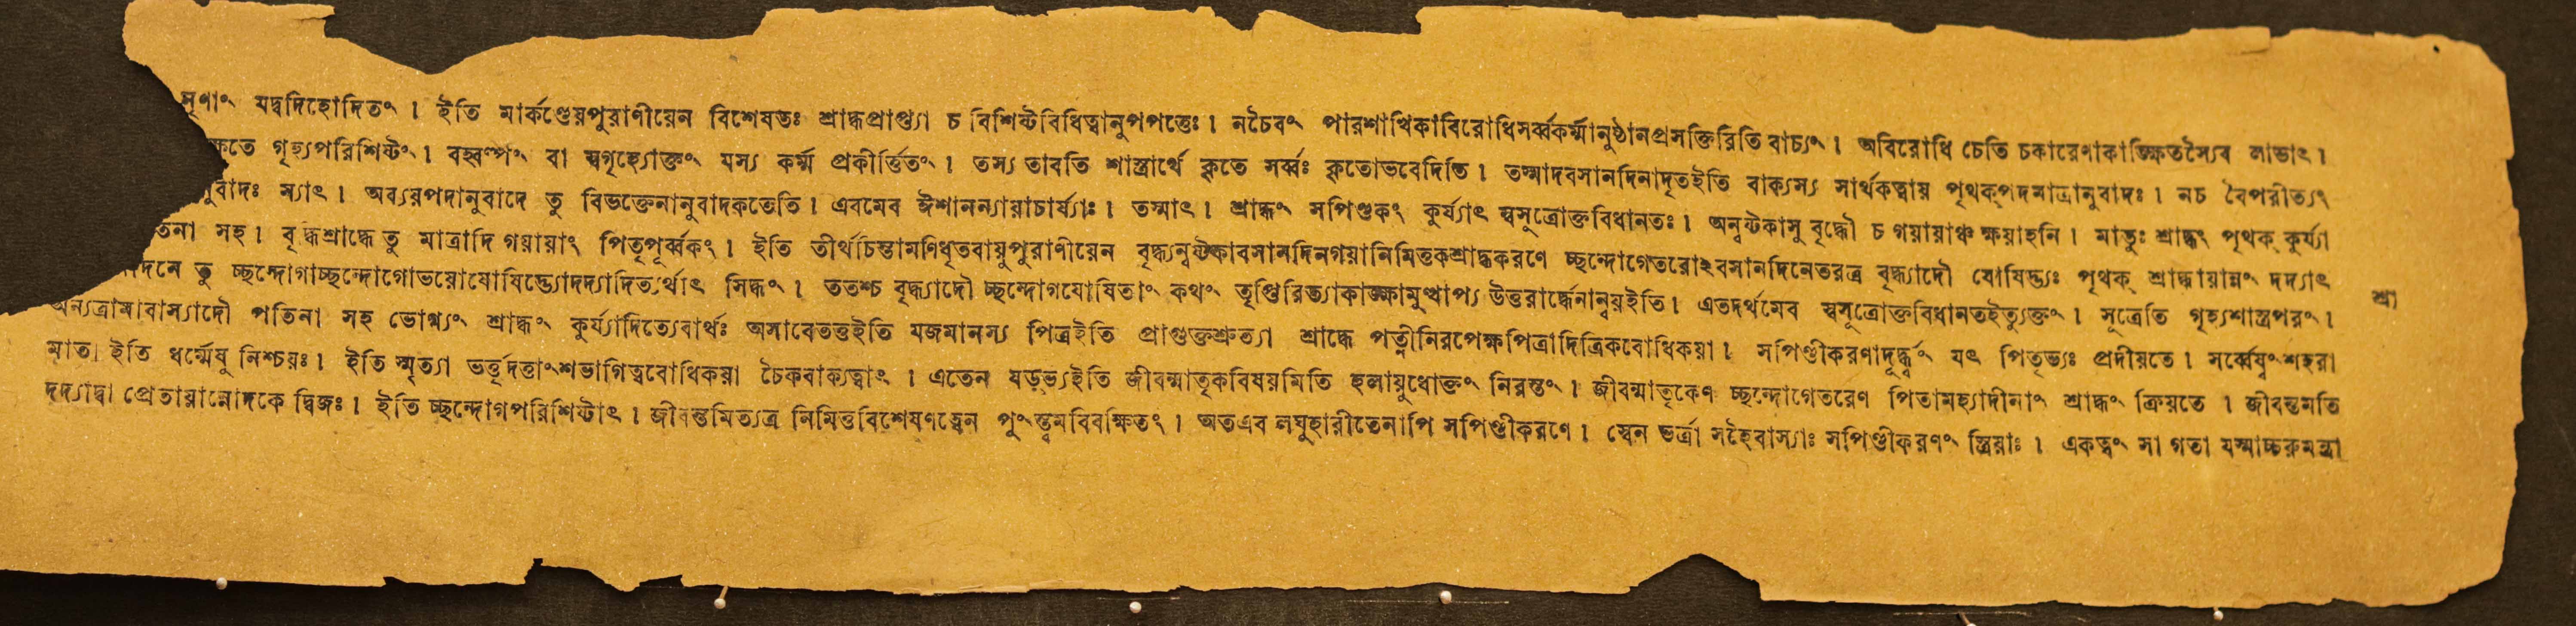 নৃণাং যদ্বদিহোদিতং । ইতি মার্কণ্ডেয়পুরাণীয়েন বিশেষতঃ শ্রাদ্ধপ্রাপ্ত্যা চ বিশিষ্টবিধিত্বানুপপত্তেঃ । নচৈবং পারশাখিকাবিরোধিসর্ব্বকর্ম্মানুষ্ঠানপ্রসক্তিরিতি বাচ্যং । অবিরোধি চেতি চকারেণাকাঙ্ক্ষিতস্যৈব লাভাৎ ।
ক্ষতে গৃহ্যপরিশিষ্টং । বহ্বল্পং বা স্বগৃহ্যোক্তং যস্য কর্ম্ম প্রকীর্ত্তিতং । তস্য তাবতি শাস্ত্রার্থে কৃতে সর্ব্বঃ কৃতোভবেদিতি । তস্মাদবসানদিনাদৃতইতি বাক্যস্য সার্থকত্বায় পৃথক্পদমাত্রানুবাদঃ । নচ বৈপরীত্যং
নুবাদঃ স্যাৎ । অব্যয়পদানুবাদে তু বিভক্তেনানুবাদকতেতি । এবমেব ঈশানন্যায়াচার্য্যাঃ । তস্মাৎ । শ্রাদ্ধং সপিণ্ডকং কুর্য্যাৎ স্বসূত্রোক্তবিধানতঃ । অন্বষ্টকাসু বৃদ্ধৌ চ গয়ায়াঞ্চ ক্ষয়াহনি । মাতুঃ শ্রাদ্ধং পৃথক্ কুর্য্যা
তিনা সহ । বৃদ্ধশ্রাদ্ধে তু মাত্রাদি গয়ায়াং পিতৃপূর্ব্বকং । ইতি তীর্থচিন্তামণিধৃতবায়ুপুরাণীয়েন বৃদ্ধ্যন্বষ্টকাবসানদিনগয়ানিমিত্তকশ্রাদ্ধকরণে চ্ছন্দোগেতরোঽবসানদিনেতরত্র বৃদ্ধ্যাদৌ যোষিদ্ভ্যঃ পৃথক্ শ্রাদ্ধায়ান্নং দদ্যাৎ
দিনে তু চ্ছন্দোগাচ্ছন্দোগোভয়োযোষিদ্ভ্যোদদ্যাদিত্যর্থাৎ সিদ্ধং । ততশ্চ বৃদ্ধ্যাদৌ চ্ছন্দোগযোষিতাং কথং তৃপ্তিরিত্যাকাঙ্ক্ষামুত্থাপ্য উত্তরার্দ্ধেনান্বয়ইতি । এতদর্থমেব স্বসূত্রোক্তবিধানতইত্যুক্তং । সূত্রেতি গৃহ্যশাস্ত্রপরং ।
শ্রা
অন্যত্রামাবাস্যাদৌ পতিনা সহ ভোগ্যং শ্রাদ্ধং কুর্য্যাদিত্যেবার্থঃ অসাবেতত্তইতি যজমানস্য পিত্রইতি প্রাগুক্তশ্রুত্যা শ্রাদ্ধে পত্নীনিরপেক্ষপিত্রাদিত্রিকবোধিকয়া । সপিণ্ডীকরণাদূর্দ্ধ্বং যৎ পিতৃভ্যঃ প্রদীয়তে । সর্ব্বেষ্বংশহরা
মাতা ইতি ধর্ম্মেষু নিশ্চয়ঃ । ইতি স্মৃত্যা ভর্ত্তৃদত্তাংশভাগিত্ববোধিকয়া চৈকবাক্যত্বাৎ । এতেন ষড়্ভ্যইতি জীবন্মাতৃকবিষয়মিতি হলায়ুধোক্তং নিরস্তং । জীবন্মাতৃকেণ চ্ছন্দোগেতরেণ পিতামহ্যাদীনাং শ্রাদ্ধং ক্রিয়তে । জীবন্তমতি
দদ্যাদ্বা প্রেতায়ান্নোদকে দ্বিজঃ । ইতি চ্ছন্দোগপরিশিষ্টাৎ । জীবন্তমিত্যত্র নিমিত্তবিশেষণত্বেন পুংস্ত্বমবিবক্ষিতং । অতএব লঘুহারীতেনাপি সপিণ্ডীকরণে । স্বেন ভর্ত্রা সহৈবাস্যাঃ সপিণ্ডীকরণং স্ত্রিয়াঃ । একত্বং সা গতা যস্মাচ্চরুমন্ত্রা